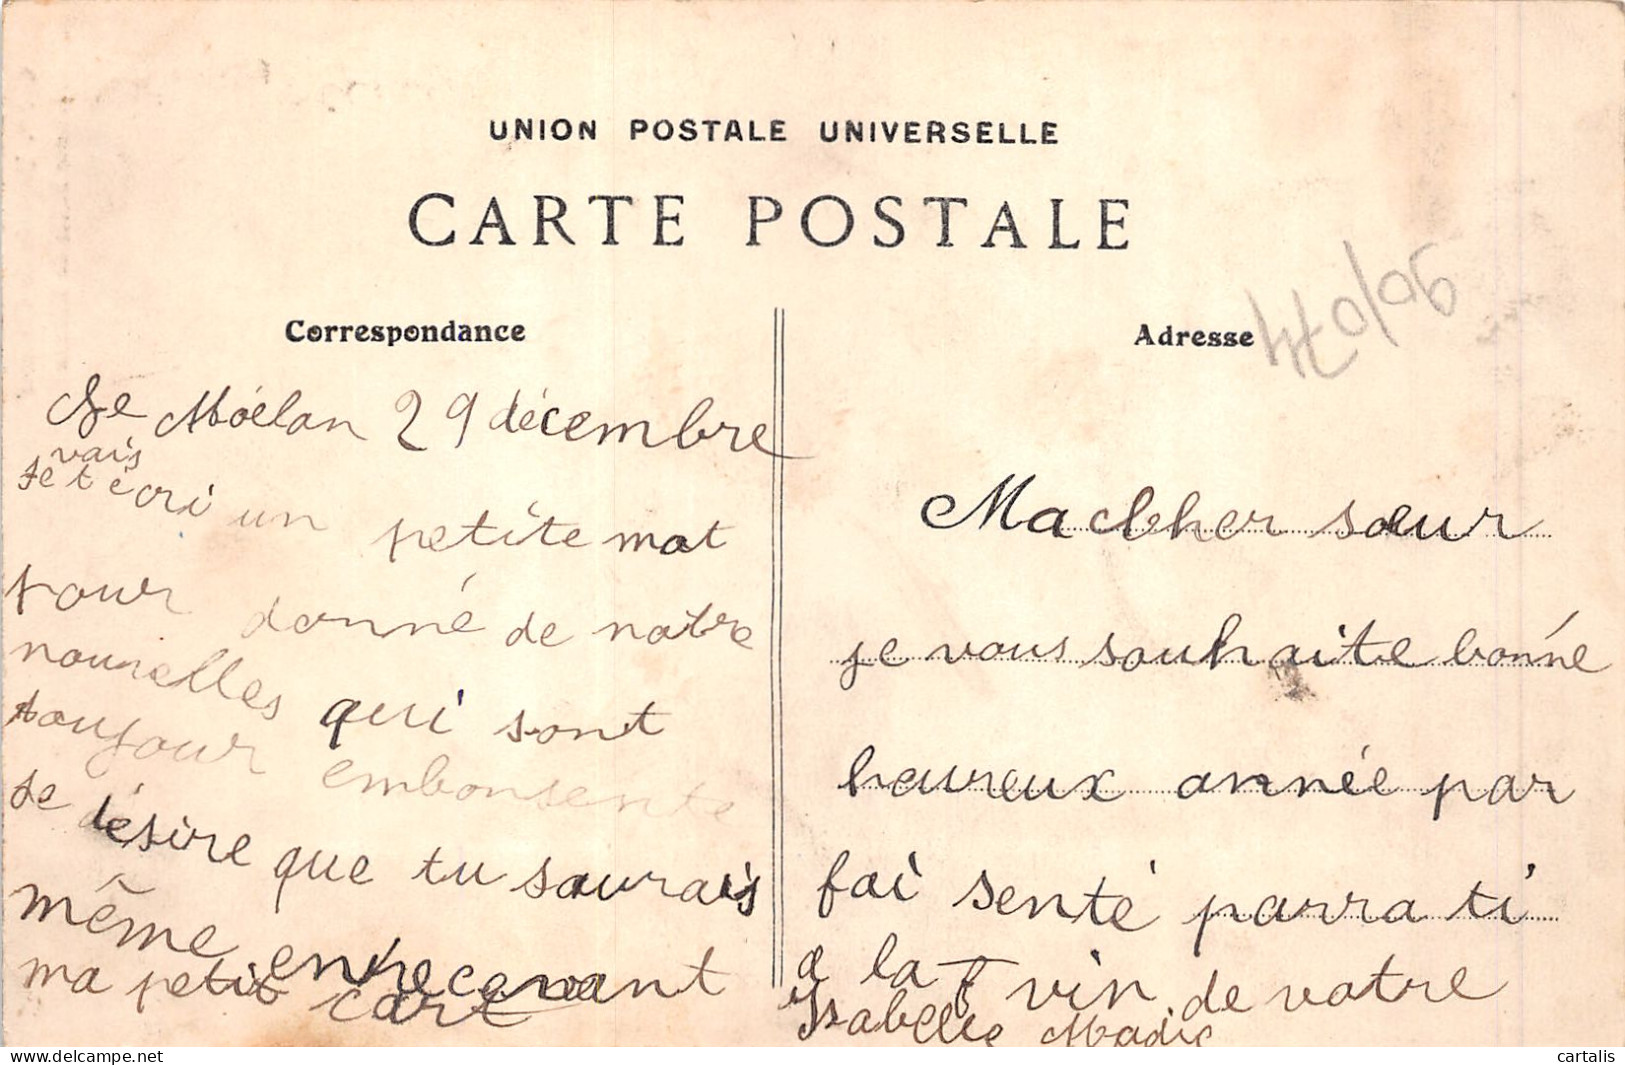 UNION POSTALE UNIVERSELLE
CARTE POSTALE
Correspondance
Le Moëlan 29 décembre
vais
Je t écri un petite mot
pour donné de notre
nouvelles qui sont
toujour embonsente
Je désire que tu saurais
même en recevant
ma petit cart
Adresse
Ma cher sœur
je vous souhaite bonne
heureux année par
fai senté parra ti
a la vin de votre
Isabelle Madic
cartalis